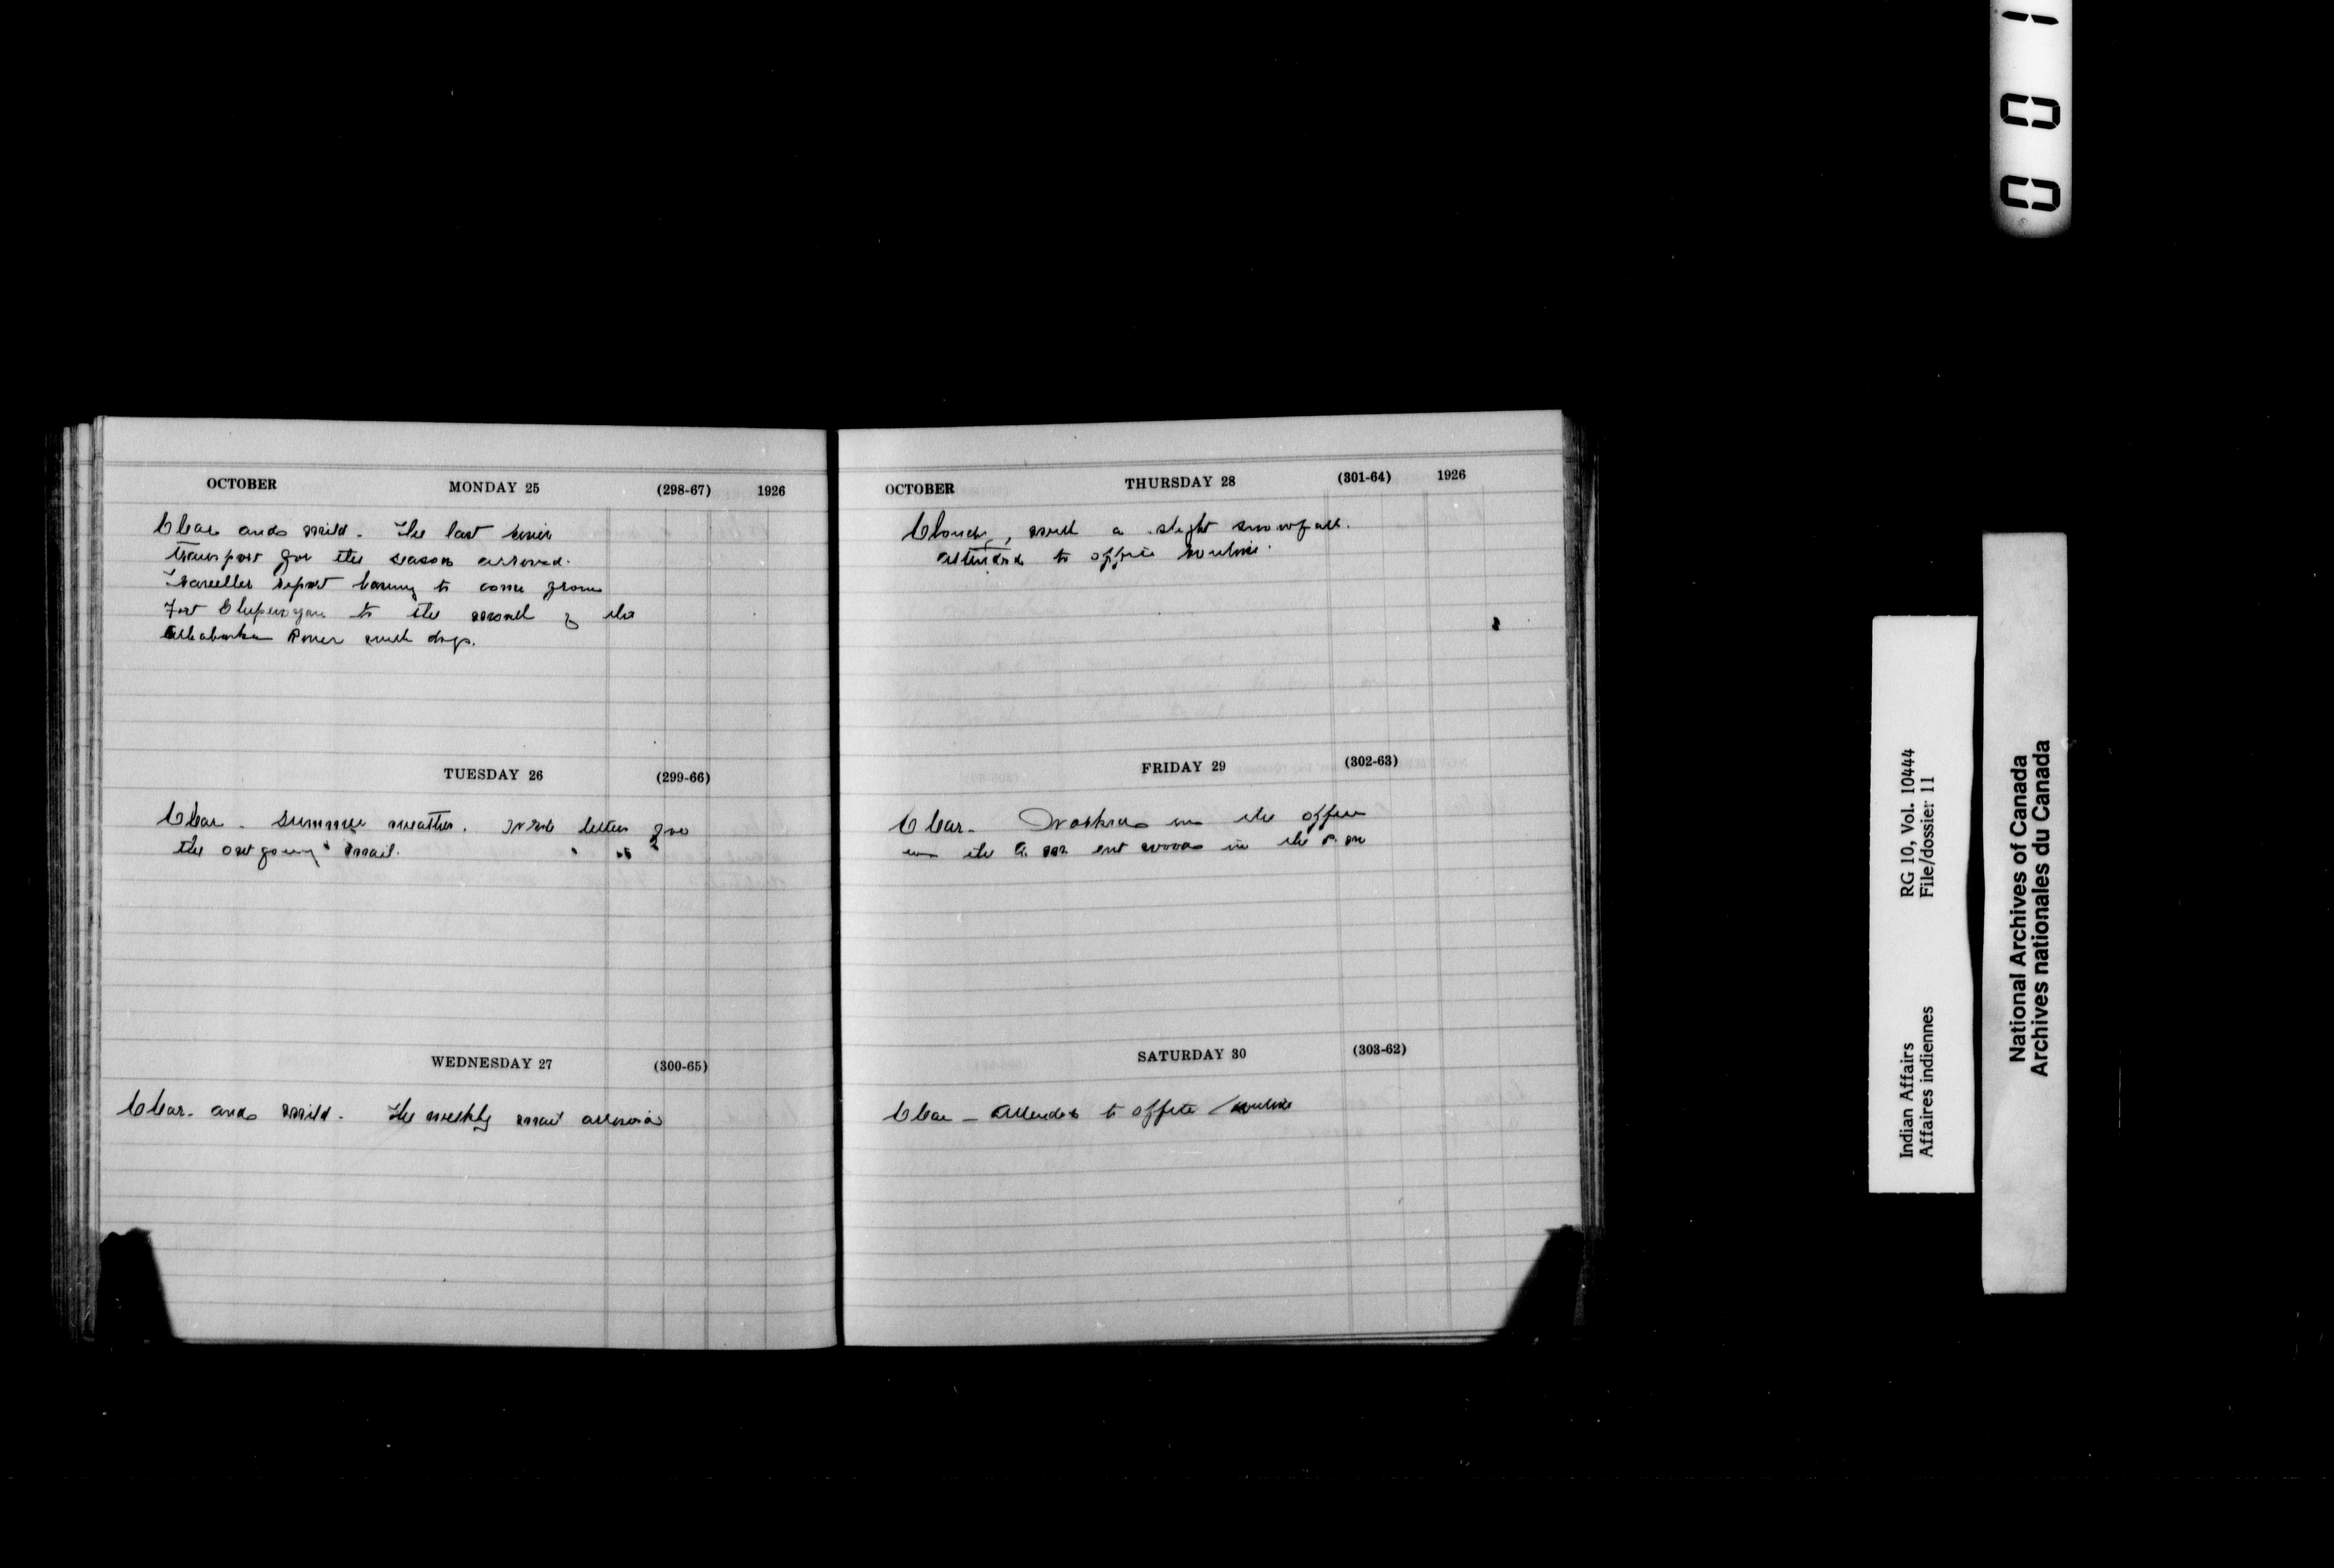 OCTOBER MONDAY 25 (298-67) 1926
Clear and mild. The last river
transport for the season arrived.
Traveller report having to come from
Fort Chipewyan to the mouth of the
Athabaska River with dogs.
TUESDAY 26 (299-66)
Clear. Summer weather. Wrote letters for
the outgoing mail.
WEDNESDAY 27 (300-65)
Clear and mild. The weekly mail arrived
OCTOBER THURSDAY 28 (301-64) 1926
Cloudy, with a slight snowfall.
Attended to office routine.
FRIDAY 29 (302-63)
Clear. Worked in the office
in the A.M. cut wood in the P.M
SATURDAY 30 (303-62)
Clear - Attended to office routine
001
Indian Affairs RG 10, Vol. 10444
Affaires indiennes File/dossier 11
National Archives of Canada
Archives nationales du Canada